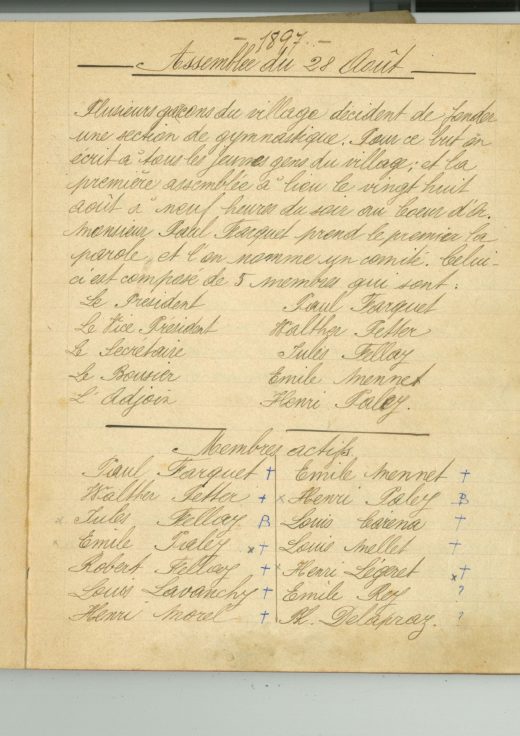 - 1897. -
Assemblée du 28 Août
Plusieurs garçons du village décident de fonder
une section de gymnastique. Pour ce but on
écrit à tous les jeunes gens du village; et la
première assemblée à lieu le vingt huit
août à neuf heures du soir au Coeur d'Or.
Monsieur Paul Farquet prend le premier la
parole, et l'on nomme un comité. Celui-
ci est composé de 5 membres qui sont:
Le President Paul Farquet
Le Vice President Walther Petter
Le Secretaire Jules Fellay
Le Boursier Emile Mennet
L'Adjoin Henri Paley.
Membres actifs
Paul Farquet † Emile Mennet †
Walther Petter † x Henri Paley B
x Jules Fellay B Louis Corena †
x Emile Paley x† Louis Mellet †
Robert Fellay † x Henri Légeret x†
Louis Lavanchy † Emile Rey ?
Henri Morel † Ph. Delapraz. ?